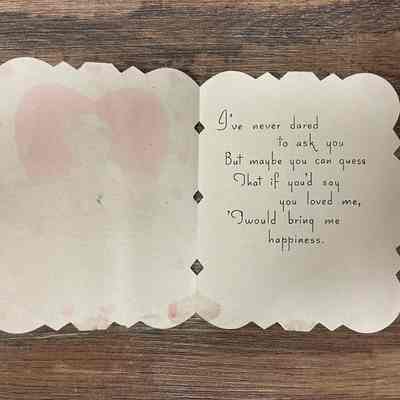 I've never dared
to ask you
But maybe you can guess
That if you'd say
you loved me,
'Twould bring me
happiness.